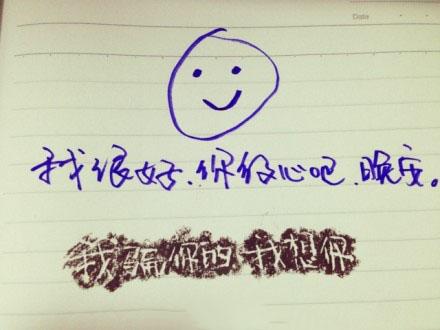 Date
我很好、你放心吧、晚安。
我骗你的 我想你